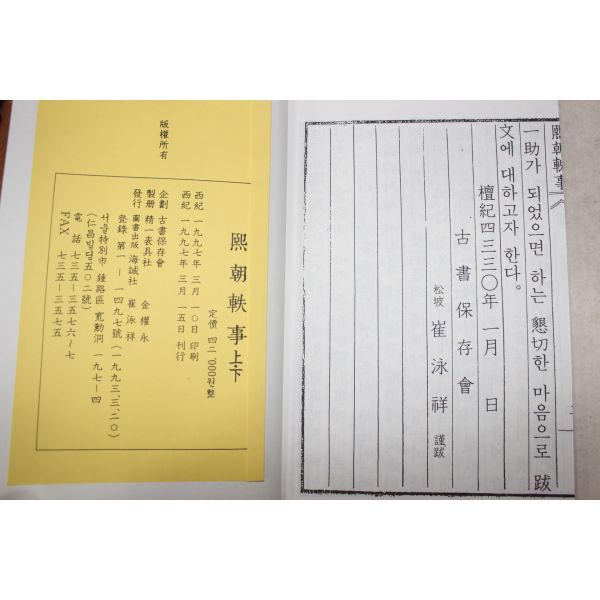 熙朝軼事
一助가 되었으면 하는 懇切한 마음으로 跋
文에 대하고자 한다。
檀紀四三三○年 一月 日
古書保存會
松坡 崔泳祥 謹跋
熙朝軼事 上·下
定價 四二,000원整
西紀 一九九七年 三月 一○日 印刷
西紀 一九九七年 三月 一五日 刊行
企劃 古書保存會
製册 精一表具社 金權永
發行 圖書出版 海誠社 崔泳祥
登錄 第一 — 一四九七號 (一九九三,三,二○)
서울特別市 鍾路區 寬勳洞 一九七—四
(仁昌빌딩 五○二號)
電話 七三五—三五七六~七
FAX 七三五—三五七五
版權所有